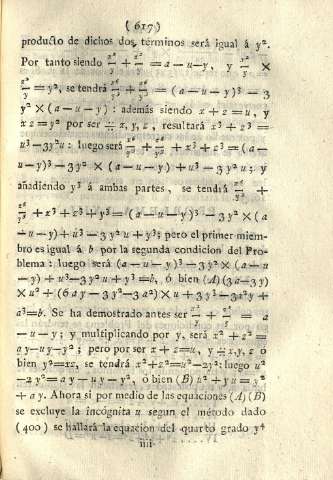 (617)
producto de dichos dos términos será igual á y².
Por tanto siendo x²/y + z²/y = a—u—y, y x²/y ×
z²/y = y², se tendrá x⁶/y³ + z⁶/y³ = (a — u — y)³ — 3
y² × (a — u — y) : además siendo x + z = u, y
x z = y² por ser ∺ x, y, z, resultará x³ + z³ =
u³—3y²u : luego será x⁶/y³ + z⁶/y³ + x³ + z³ = (a—
u—y)³—3 y² × (a — u — y) + u³ — 3 y² u ; y
añadiendo y³ á ambas partes, se tendrá x⁶/y³ +
z⁶/y³ + x³ + z³ + y³ = (a — u — y)³ — 3 y² × (a
— u — y) + u³ — 3 y² u + y³; pero el primer miem-
bro es igual á b por la segunda condicion del Pro-
blema : luego será (a — u — y)³ — 3 y² × (a — u
— y) + u³ — 3 y² u + y³ = b, ó bien (A) (3 a — 3 y)
× u² + (6 a y — 3 y² — 3 a²) × u + 3 y³ — 3 a² y +
a³ = b. Se ha demostrado antes ser x²/y + z²/y = a
— u — y; y multiplicando por y, será x² + z² =
a y — u y — y² ; pero por ser x + z = u, y ∺ x, y, z ó
bien y² = xz, se tendrá x² + z² = u² — 2y²: luego u²
— 2 y² = a y — u y — y², ó bien (B) u² + y u = y²
+ a y. Ahora si por medio de las equaciones (A) (B)
se excluye la incógnita u segun el método dado
(400) se hallará la equacion del quarto grado y⁴
IIII